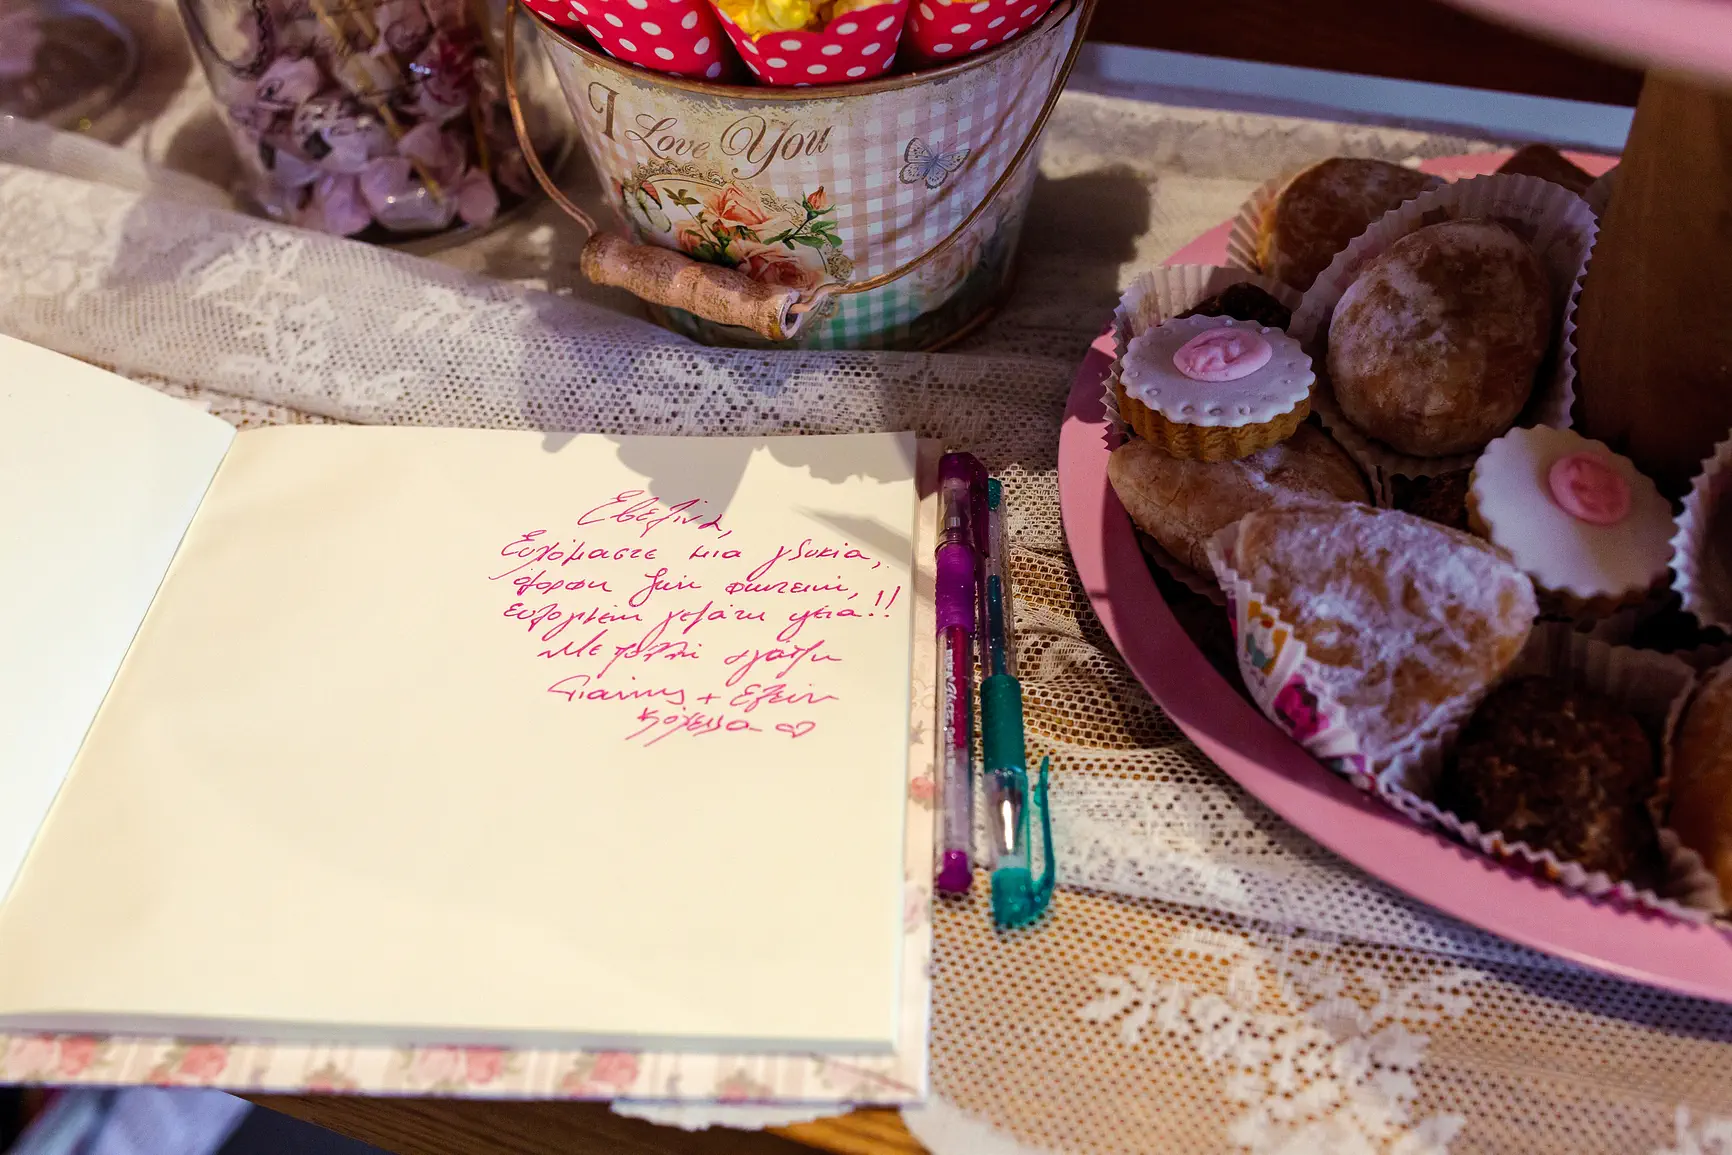 I Love You
Εβελίνα,
Ευχόμαστε μια γλυκιά,
όμορφη ζωή φωτεινή,
ευλογημένη γεμάτη υγεία!!
Με πολλή αγάπη
Γιάννης + Ελένη